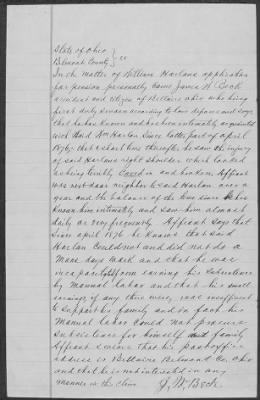 State of Ohio }
Belmont County } SS
In the matter of William Harlans application
for pension personally came James W Beck
a resident and citizen of Bellaire Ohio who being
first duly sworn according to law deposes and says
that he has known and has been intimately acquainted
with said Wm Harlan since latter part of april
1876 that a short time thereafter he saw the injury
of said Harlans right shoulder which looked
as being terribly Caved in and broken Affiant
was next door neighbor to said Harlan over a
year and the balance of the time since he has
known him intimately and saw him almost
daily or very frequently Affiant says that
since april 1876 he knows that said
Harlan Could not and did not do a
Mans days work and that he was
incapacitated from earning his Subsistence
by Manual labor and that his small
earnings of any there were, was insufficient
to support his family and in fact his
Manual labor Could not procure
subsistence for himself and family
affiant swears that his post office
address is Bellaire Belmont Co. Ohio
and that he is not interested in any
manner in the claim
J. W. Beck